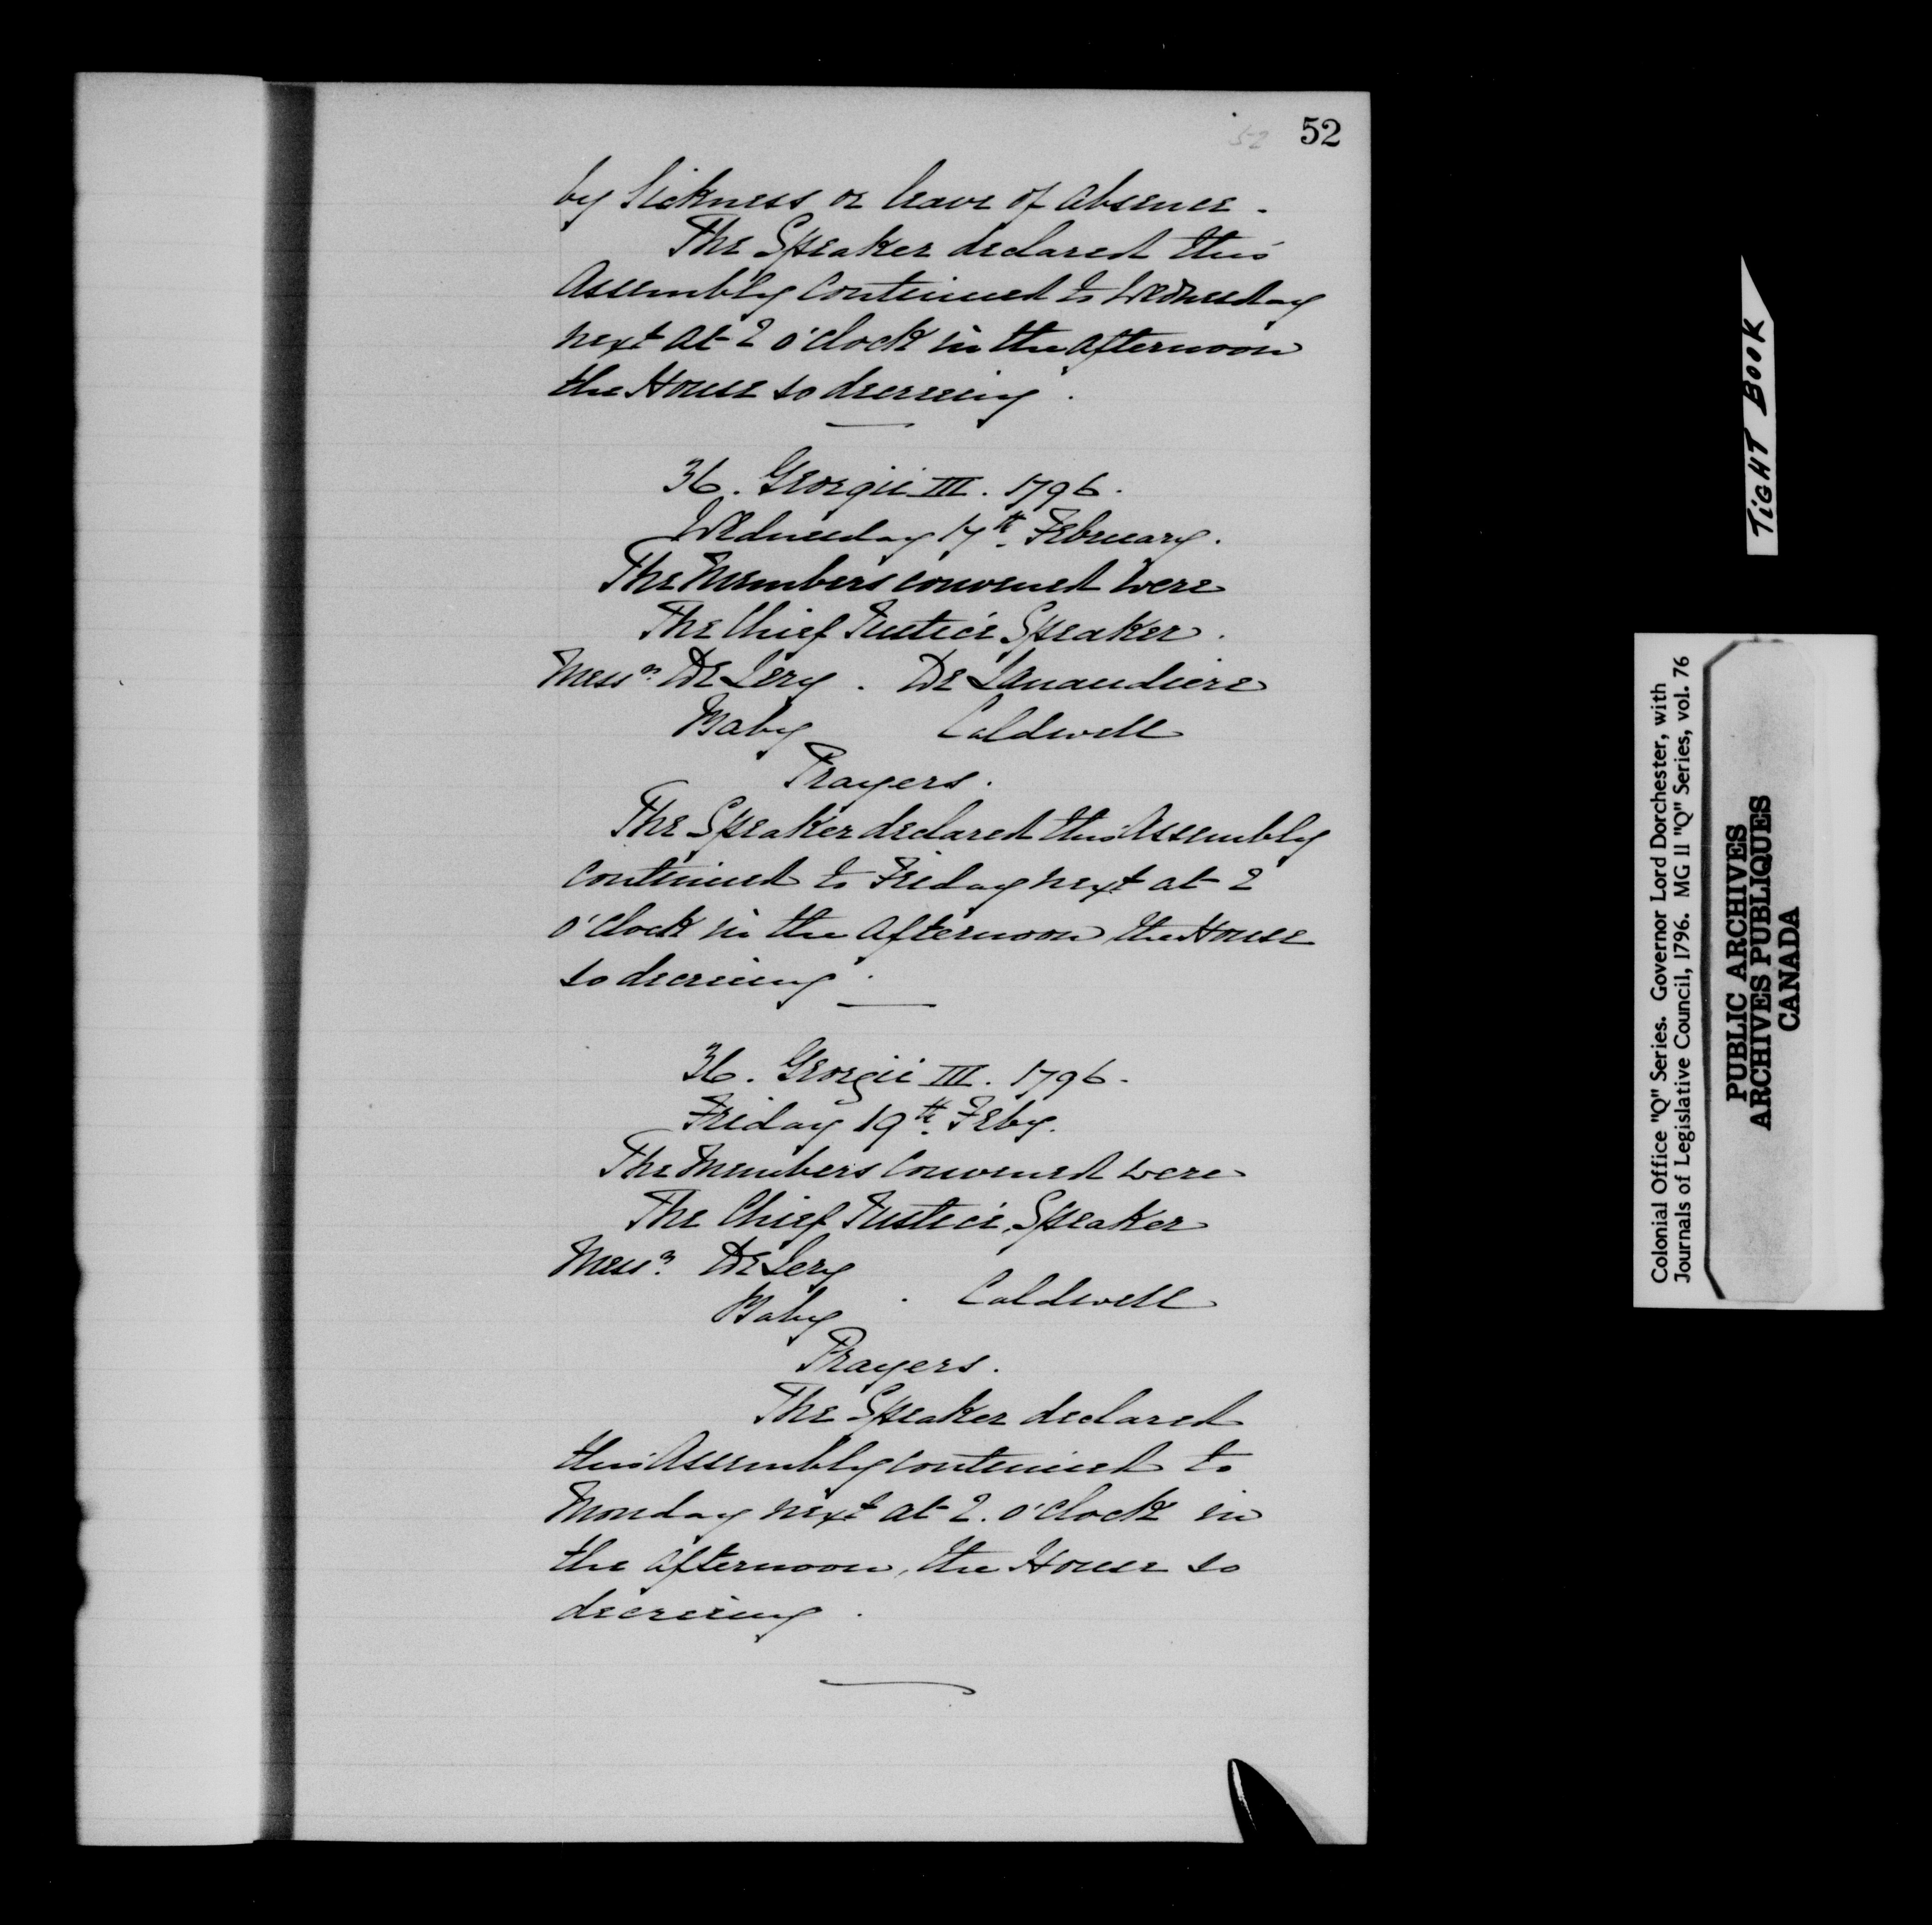 52
52
by Sickness or leave of absence -
The Speaker declared this
Assembly continued to Wednesday
next at 2 o'clock in the afternoon
the House so decreeing.
36. Georgii III. 1796.
Wednesday 17th February.
The Members convened were
The Chief Justice Speaker.
Messrs. De Lery. De Lanaudiere
Baby Caldwell
Prayers.
The Speaker declared this Assembly
continued to Friday next at 2
o'clock in the afternoon the House
so decreeing.
36. Georgii III. 1796.
Friday 19th Feby.
The Members convened were
The Chief Justice, Speaker
Messrs. De Lery
Baby . Caldwell
Prayers.
The Speaker declared
this Assembly continued to
Monday next at 2. o'clock in
the afternoon, the House so
decreeing.
TIGHT BOOK
Colonial Office "Q" Series. Governor Lord Dorchester, with
Journals of Legislative Council, 1796. MG 11 "Q" Series, vol. 76
PUBLIC ARCHIVES
ARCHIVES PUBLIQUES
CANADA